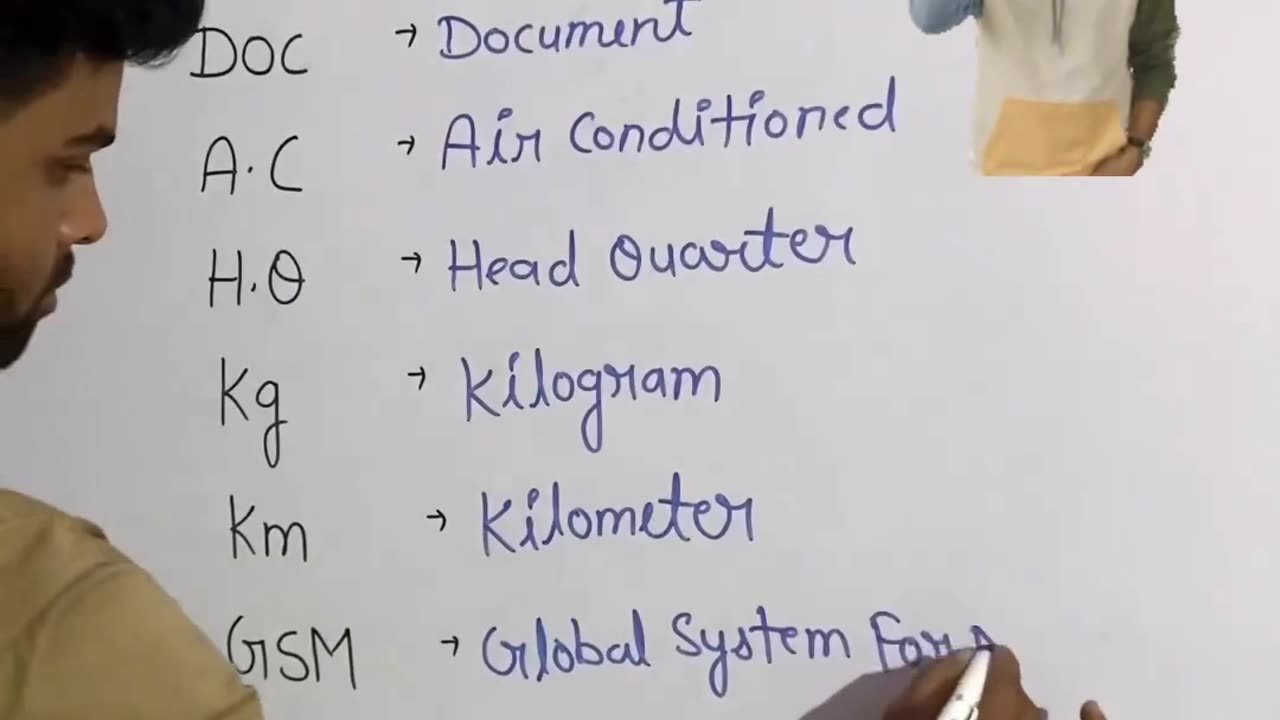 DOC → Document
A.C → Air Conditioned
H.Q → Head Quarter
Kg → Kilogram
Km → Kilometer
GSM → Global System For